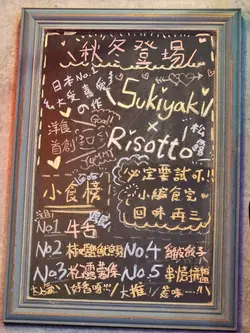 秋冬登場
日本No.1
大受喜愛
の作
Sukiyaki
×
Risotto
洋食
首創
Good!
YUMMY
必定要試吓!!
小編食完
回味再三
小食榜
No1 牛舌
No.2 椒鹽魷魚鬚
No.3 松露薯條
No.4
No.5 串燒拼盤
好香呀!!!
大推!